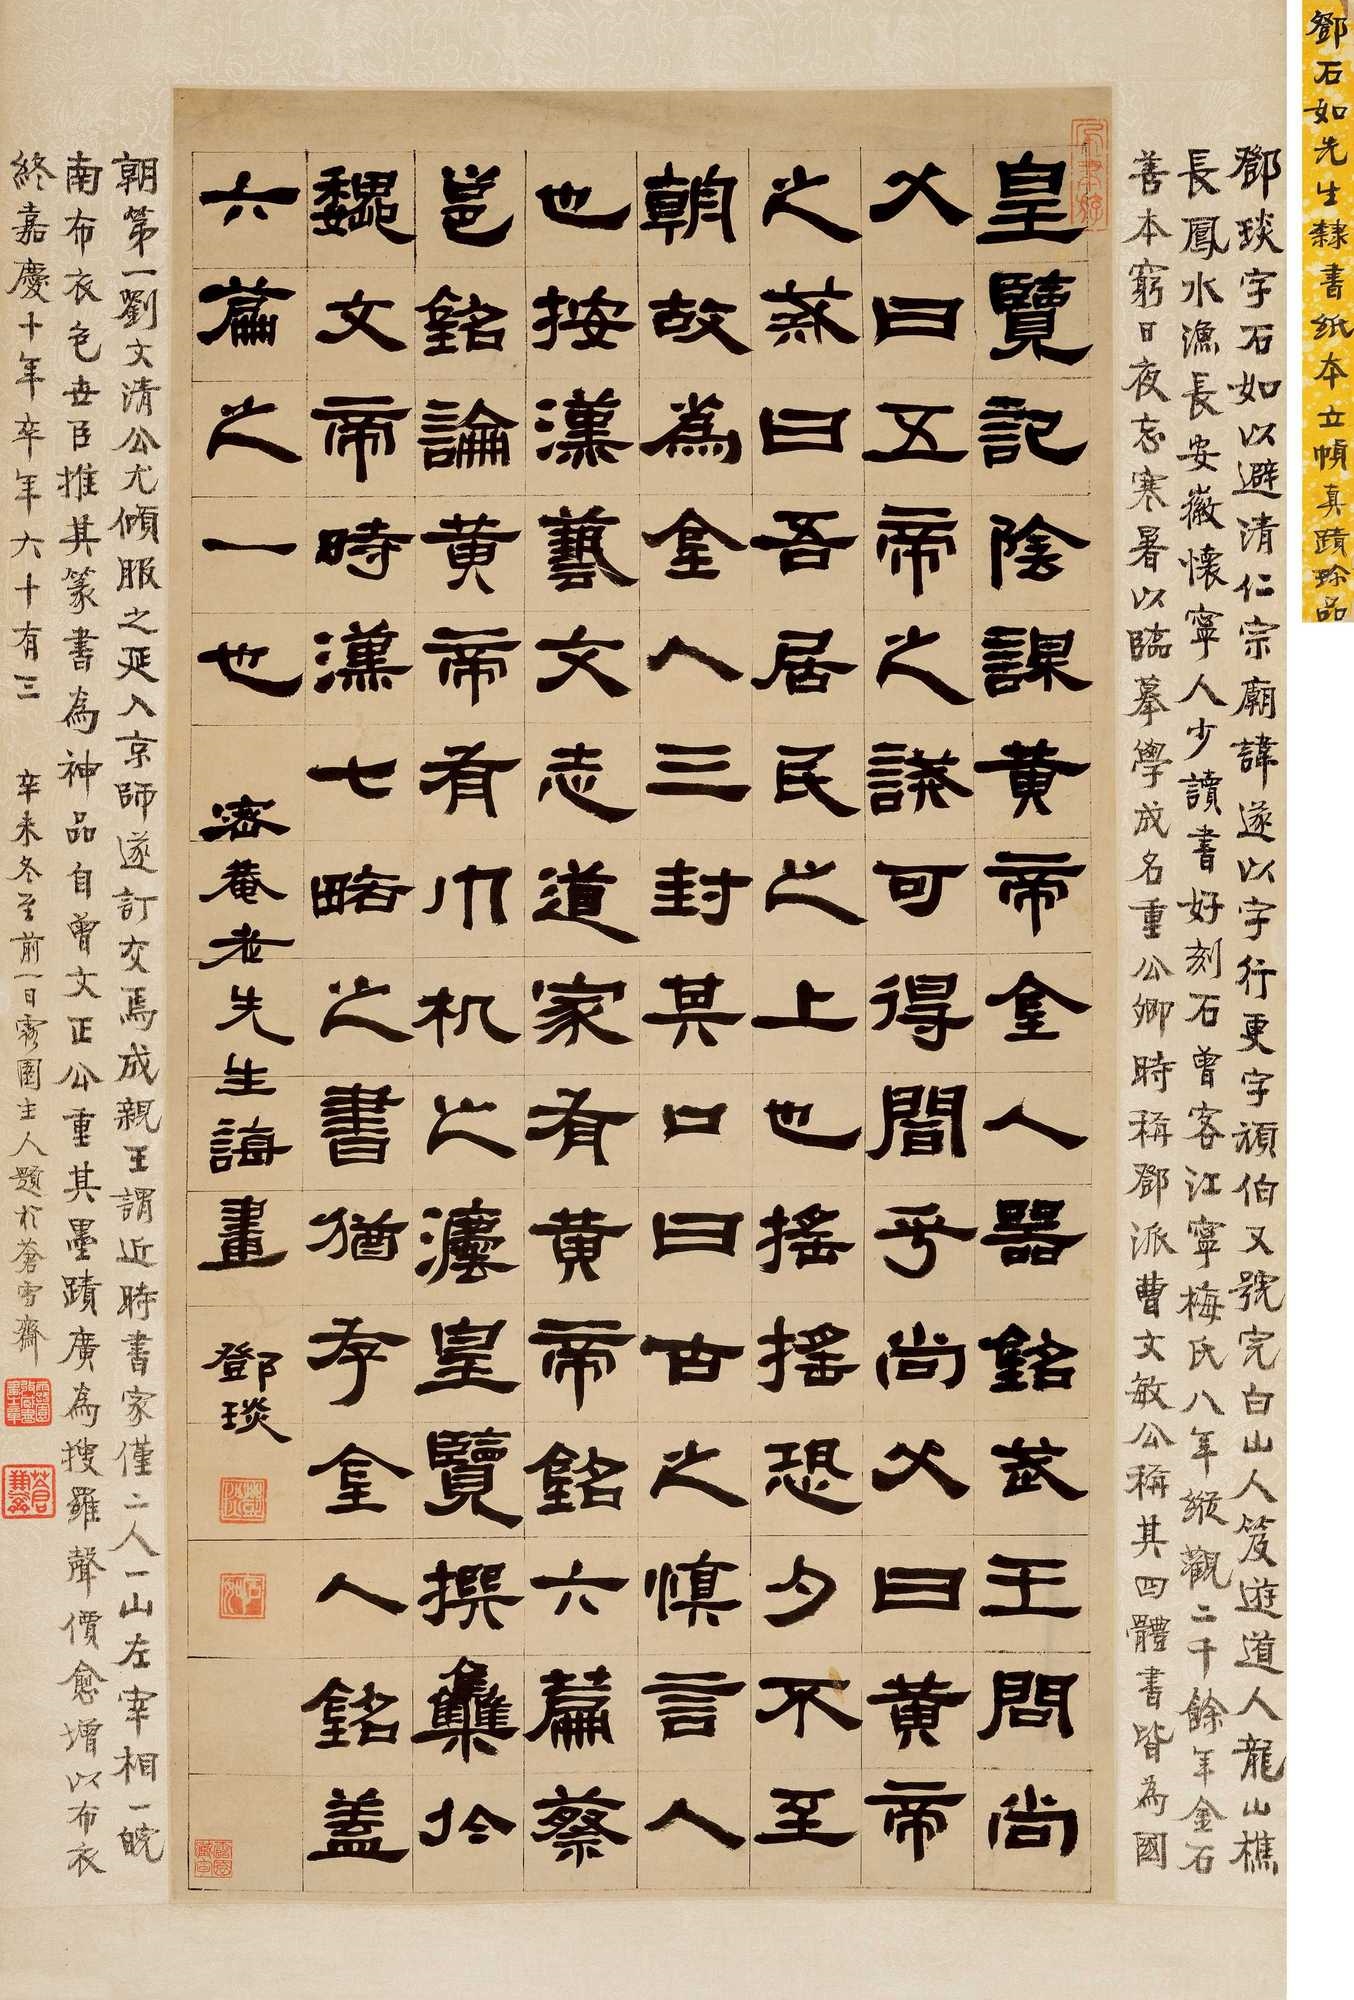 鄧石如先生隸書紙本立幀真蹟珍品
鄧琰字石如以避清仁宗廟諱遂以字行更字頑伯又號完白山人笈遊道人龍山樵
長鳳水漁長安徽懷寧人少讀書好刻石曾客江寧梅氏八年縱觀二千餘年金石
善本窮日夜忘寒暑以臨摹學成名重公卿時稱鄧派曹文敏公稱其四體書皆為國
皇覽記陰謀黄帝金人器銘武王問尚
父曰五帝之誡可得聞乎尚父曰黄帝
之誡曰吾居民之上也搖搖恐夕不至
朝故為金人三封其口曰古之慎言人
也按漢藝文志道家有黄帝銘六篇蔡
邕銘論黄帝有巾机之法皇覽撰集於
魏文帝時漢七略之書猶存金人銘蓋
六篇之一也
密菴老先生誨畫
鄧琰
朝第一劉文清公尤傾服之延入京師遂訂交焉成親王謂近時書家僅二人一山左宰相一皖
南布衣色世臣推其篆書為神品自曾文正公重其墨蹟廣為搜羅聲價愈增以布衣
終嘉慶十年卒年六十有三
辛未冬至前一日霧園主人題於蒼雪齋